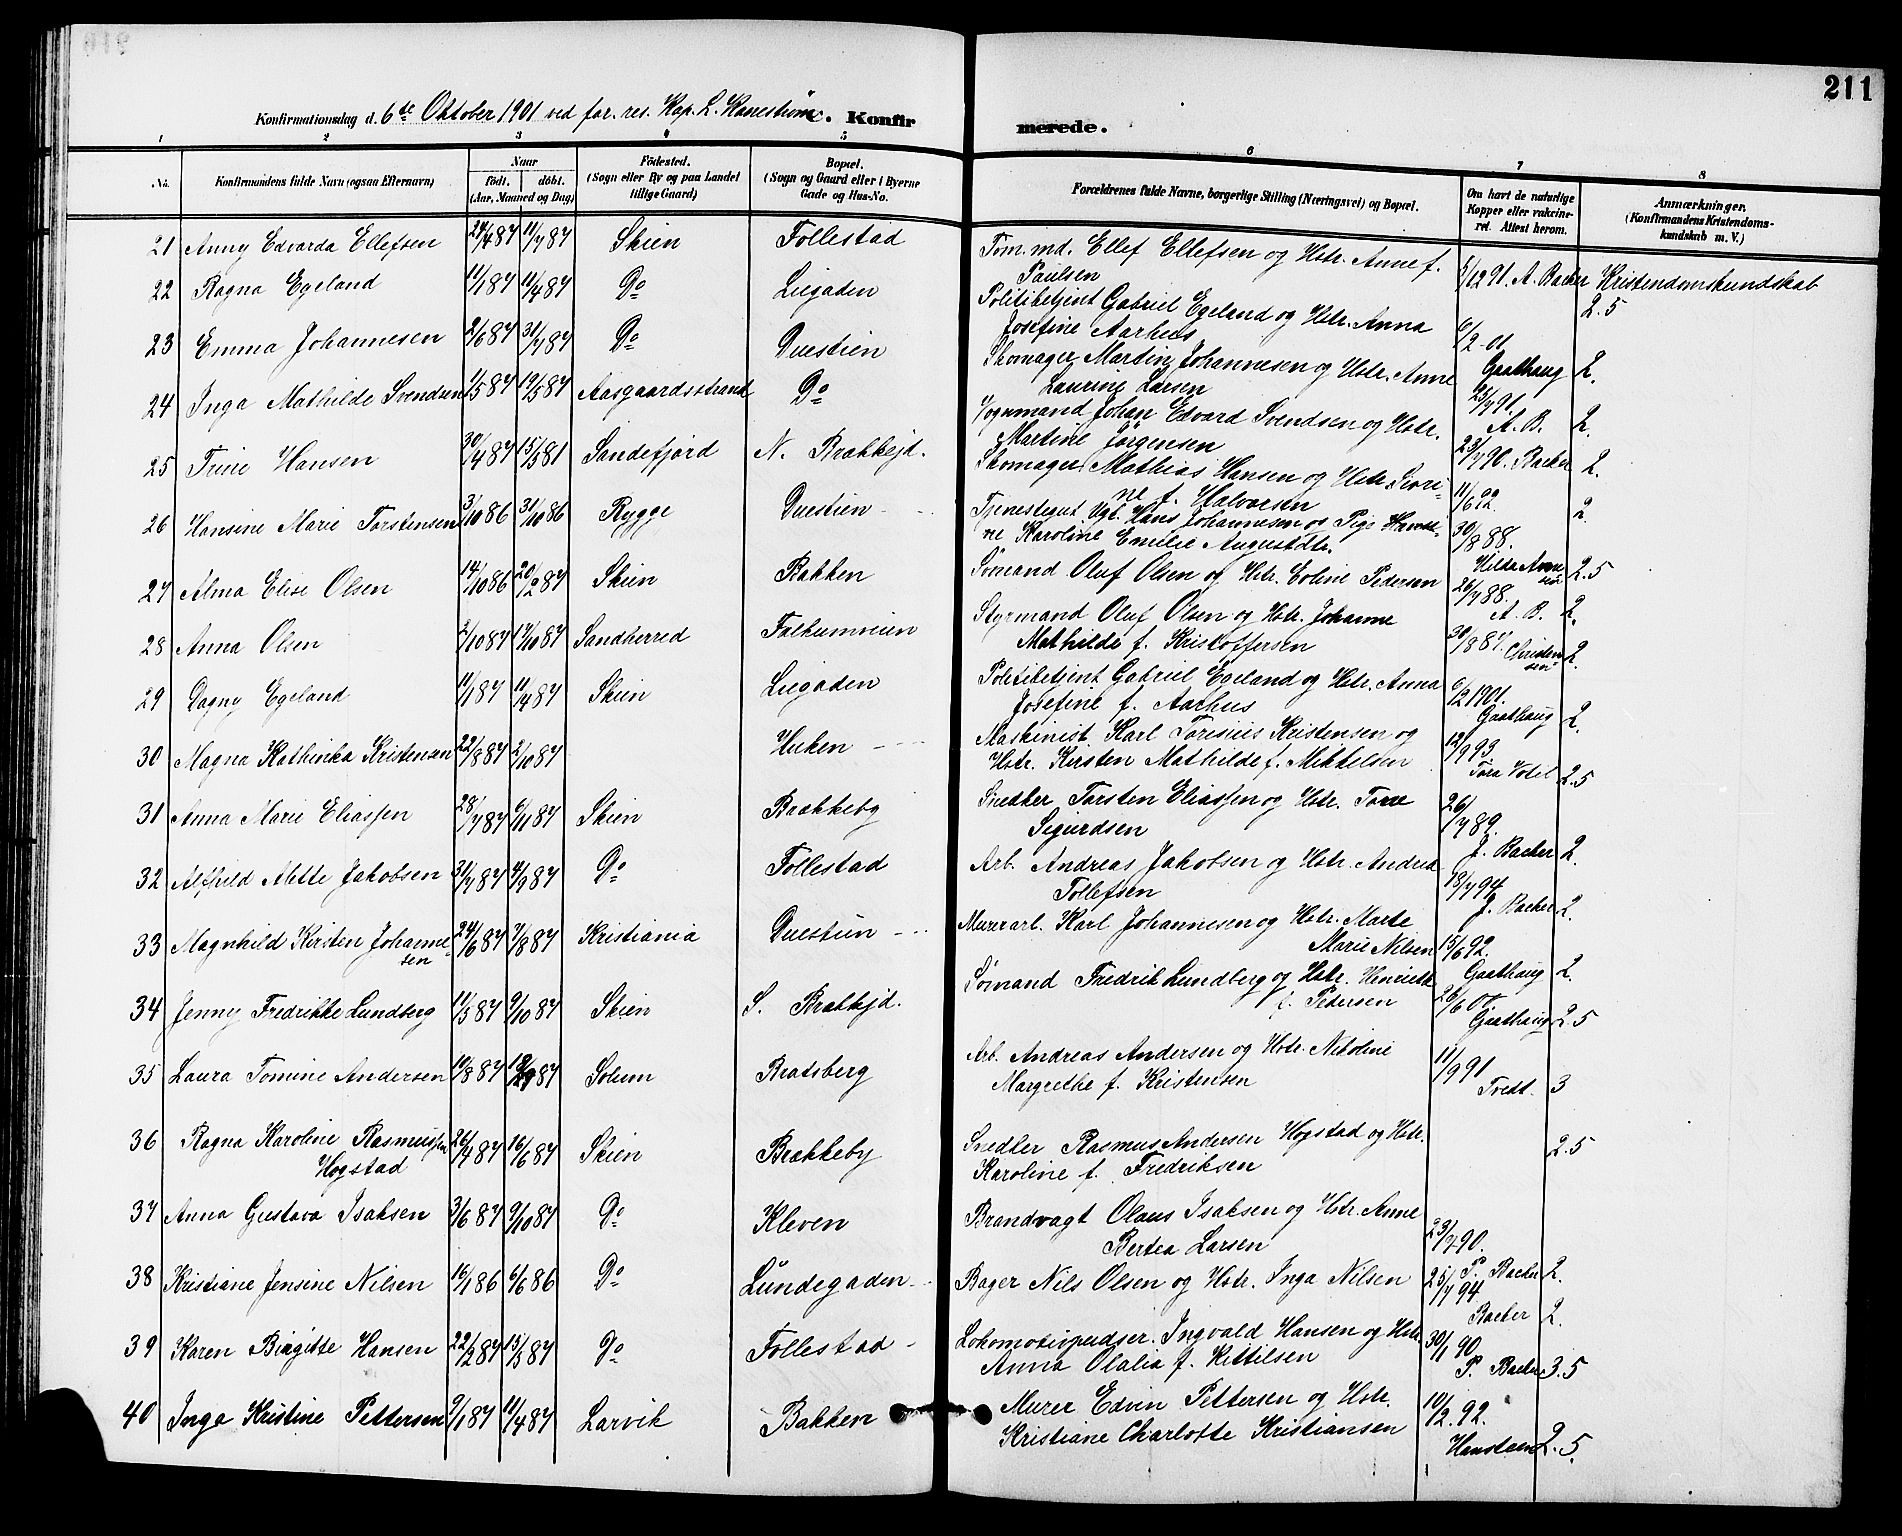 211
Konfirmationsdag d. 6te Oktober 1901 ved for. res. Kap. L. Konfir
merede.
1 2 3 4 5 6 7 8
No. Konfirmandens fulde Navn (ogsaa Efternavn) Naar födt. döbt. (Aar, Maaned og Dag) Födested. (Sogn eller By og paa Landet tillige Gaard) Bopæl. (Sogn og Gaard eller i Byerne Gade og Hus-No. Forældrenes fulde Navne, borgerlige Stilling (Næringsvei) og Bopæl. Om havt de naturlige Kopper eller vaccineret. Attest herom. Anmærkninger. (Konfirmandens Kristendomskundskab m. V.)
21 Anny Edvarda Ellefsen 24/4 87 11/7 87 Skien Follestad Töm.md. Ellef Ellefsen og Hstr. Anne f.
Paulsen 5/12 91. A. Backer Kristendomskundskab
2.5
22 Ragna Egeland 11/1 87 11/4 87 Do Liegaden Politibetjent Gabriel Egeland og Hstr. Anna
Josefine Aarhus 6/2 -01 Gaathaug 2.
23 Emma Johannesen 2/6 87 31/7 87 Do Duestien Skomager Martin Johannesen og Hstr. Anne
Laurine Larsen 23/7 91. A. B. 2.
24 Inga Mathilde Svendsen 1/5 87 19/5 87 Aasgaardsstrand Do Vognmand Johan Edvard Svendsen og Hstr.
Martine Jørgensen 23/7 90. Backer 2.
25 Trine Hansen 30/4 87 15/5 81 Sandefjord N. Brækkejd. Skomager Mathias Hansen og Hstr. Siori-
ne f. Halvorsen 11/6 92. 2.
26 Hansine Marie Torstensen 3/10 86 31/10 86 Rygge Duestien Tjenestegut Ugt. Hans Johannesen og Pige Hansi-
ne Karoline Emilie Augustdtr. 30/8 88.
27 Alma Elise Olsen 14/10 86 20/2 87 Skien Bakken Sömand Oluf Olsen og Hstr. Evline Pedersen 26/7 88. A. B. 2.5
28 Anna Olsen 2/10 87 17/10 87 Sandherred Falkumveien Styrmand Oluf Olsen og Hstr. Johanne
Mathilde f. Kristoffersen 30/8 87. Christensen 2.
29 Dagny Egeland 11/1 87 11/4 87 Skien Liegaden Politibetjent Gabriel Egeland og Hstr. Anna
Josefine f. Aarhus 6/2 1901. Gaathaug 2.
30 Magna Kathinka Kristensen 22/8 87 2/10 87 Huken Maskinist Karl Kristensen og
Hstr. Kirsten Mathilde f. Mikkelsen 12/9 93 2.5
31 Anna Marie Eliassen 28/7 87 6/11 87 Skien Brækkeby Snedker Torsten Eliassen og Hstr. Tone
Sigurdsen 26/7 89. J. Backer 2.
32 Alfhild Alette Jakobsen 31/7 87 4/9 87 Do Follestad Arb. Andreas Jakobsen og Hstr. Andrea
Tollefsen 18/7 94 J. Backer 2.
33 Magnhild Kirsten Johanne-
sen 24/6 87 7/8 87 Kristiania Duestien Murerarb. Karl Johannesen og Hstr. Marte
Marie Nilsen 15/6 92. Gaathaug 2.
34 Jenny Fredrikke Lundberg 11/5 87 9/10 87 Skien S. Brækkejd. Sömand Fredrik Lundberg og Hstr. Henriette
f. Pedersen 26/6 00 Gaathaug 2.5
35 Laura Tomine Andersen 10/8 87 87 Solum Bratsberg Arb. Andreas Andersen og Hstr. Nikoline
Margrethe f. Kristensen 11/9 91 Tvedt. 3
36 Ragna Karoline Rasmussen
Hogstad 26/4 87 16/6 87 Skien Brækkeby Snedker Rasmus Andersen Hogstad og Hstr.
Karoline f. Fredriksen 2.5
37 Anna Gustava Isaksen 3/6 87 9/10 87 Do Kleven Brandvagt Olaus Isaksen og Hstr. Anne
Bertea Larsen 23/7 90. P. Backer 2.
38 Kristiane Jensine Nilsen 16/1 86 6/6 86 Do Lundegaden Bager Nils Olsen og Hstr. Inga Nilsen 25/7 94 Backer 2.
39 Karen Birgitte Hansen 22/2 87 15/5 87 Do Follestad Lokomotivpudser. Ingvald Hansen og Hstr.
Anna Olalia f. Kittilsen 30/1 90 P. Backer 3.5
40 Inga Kristine Pettersen 9/1 87 11/4 87 Larvik Bakken Murer Edvin Pettersen og Hstr.
Kristiane Charlotte Kristiansen 10/2. 92. Hansteen 2.5.